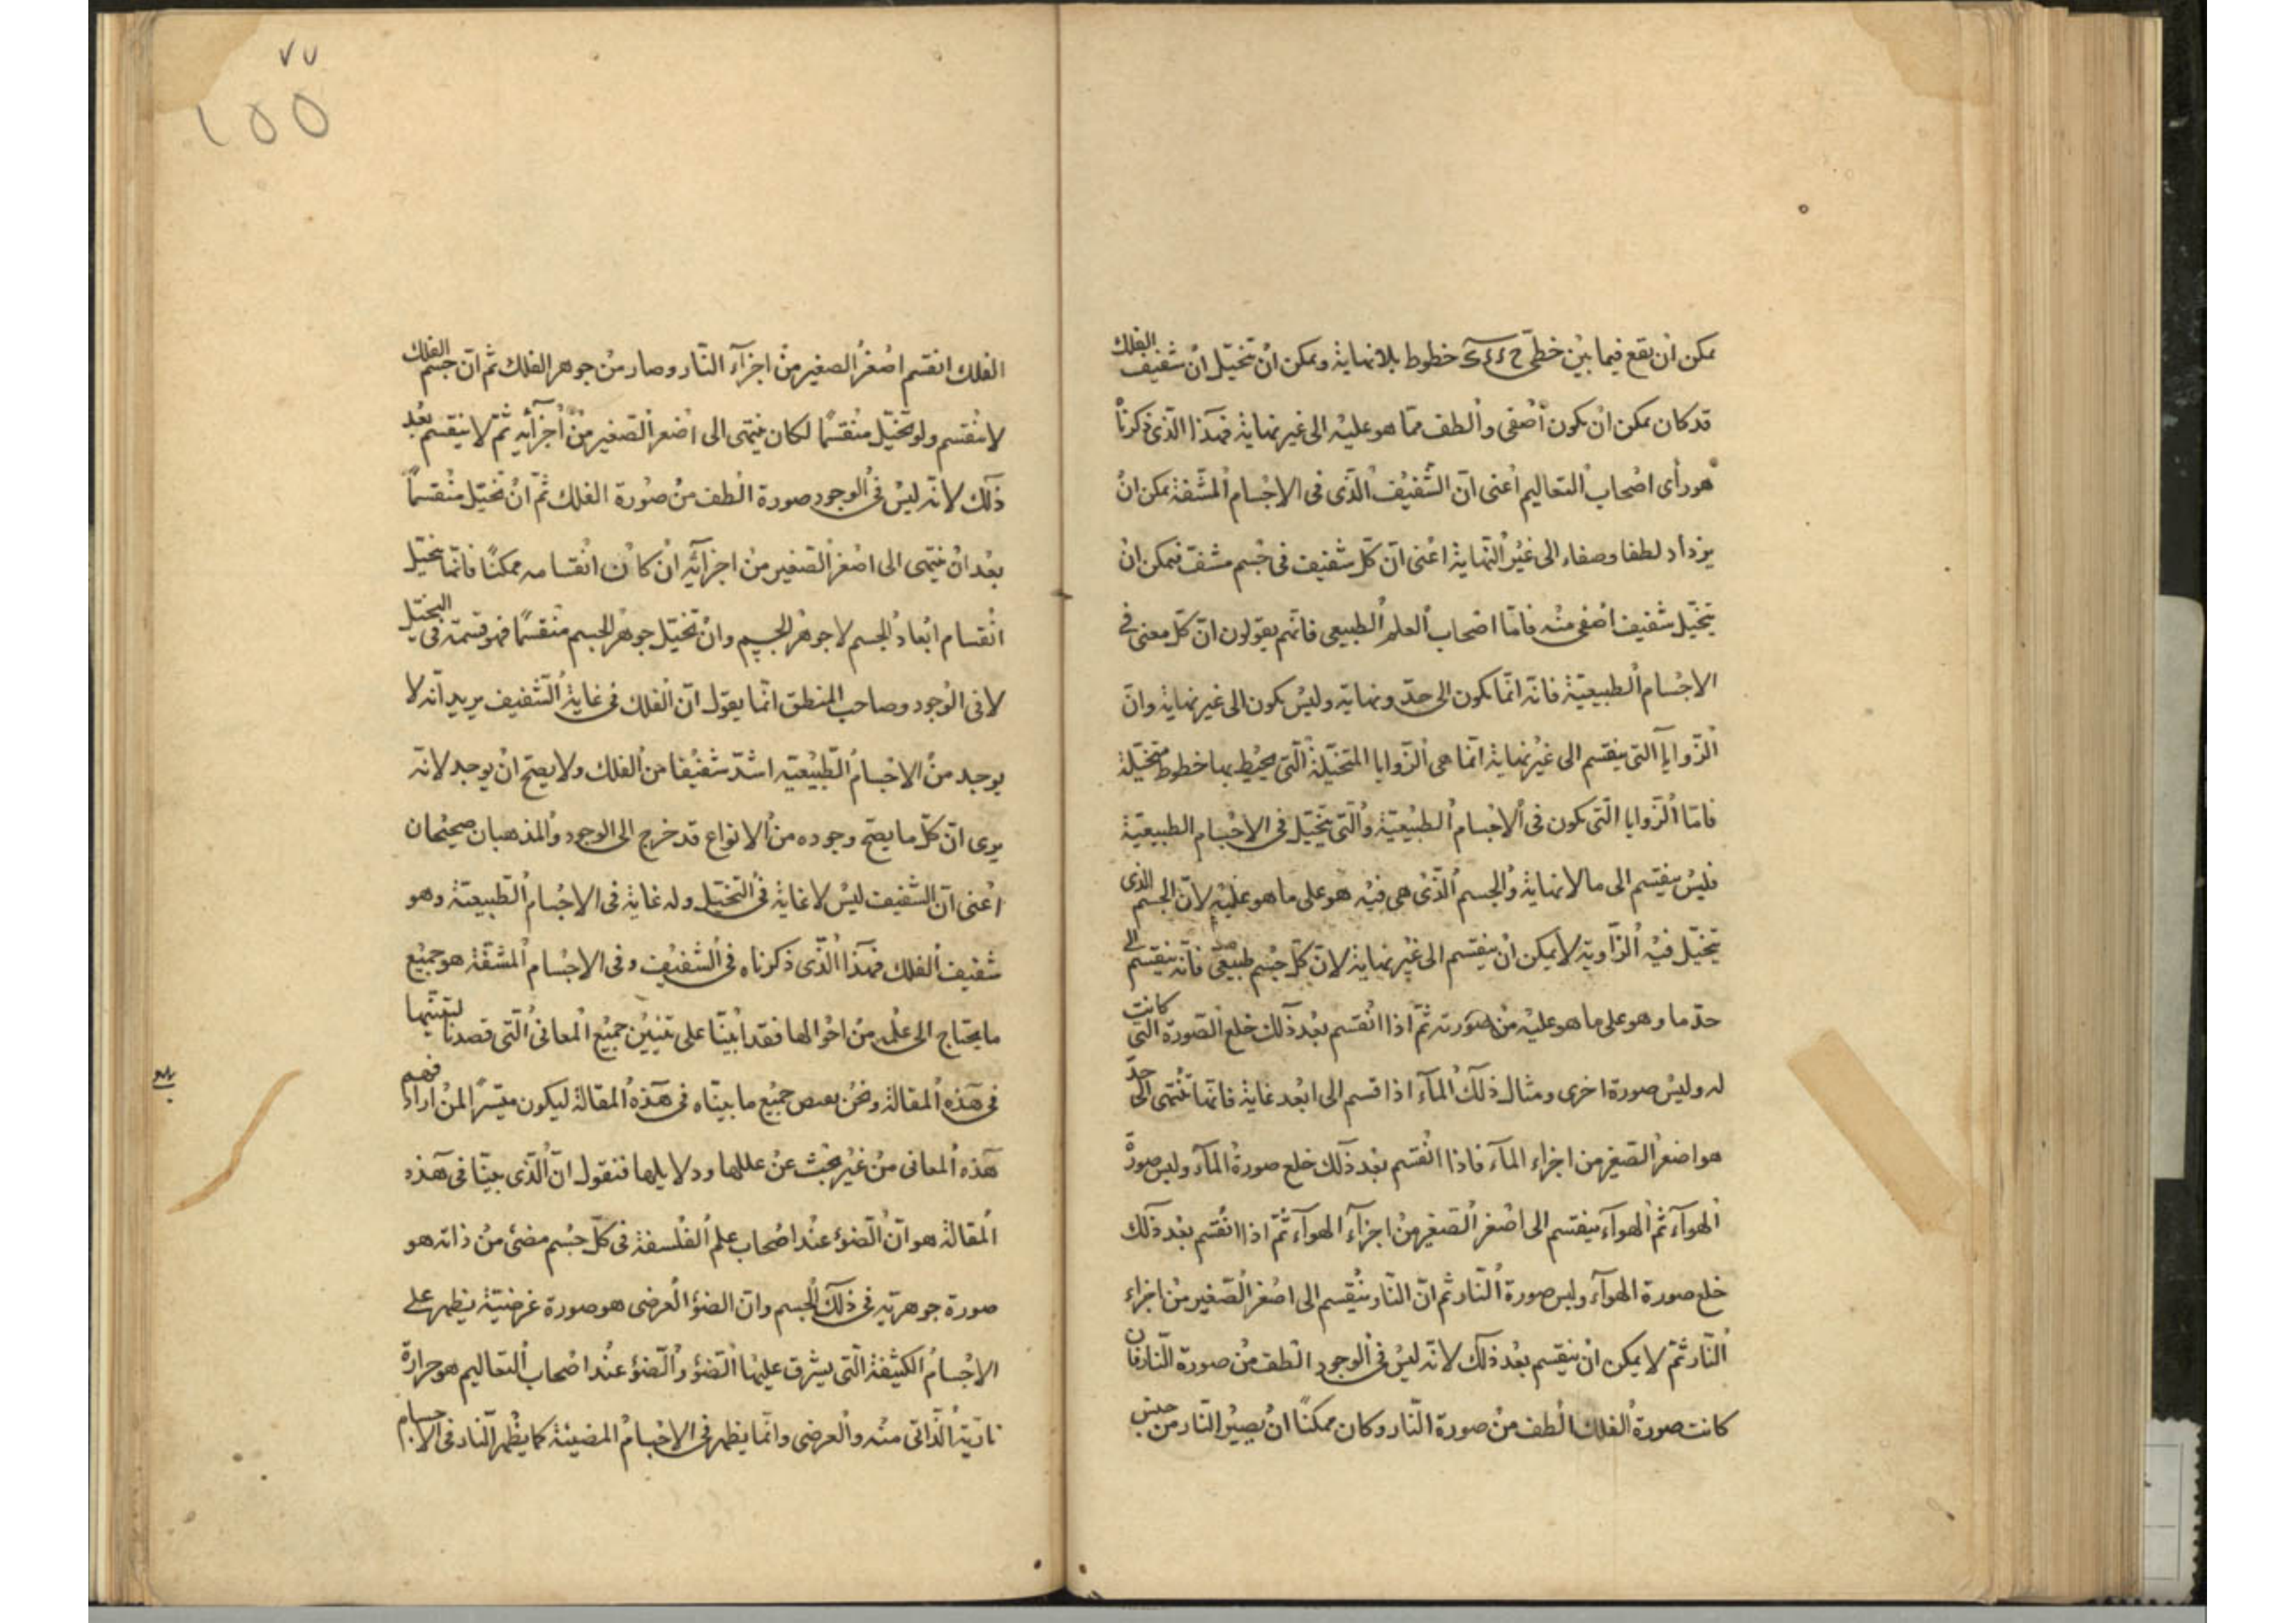 يمكن ان يقع فيما بين خطى خطوط بلا نهاية ويمكن ان تتخيل ان شفيف الفلك
قد كان يمكن ان يكون اصفى والطف مما هو عليه الى غير نهاية فهذا الذى ذكرناه
هو رأى اصحاب التعاليم اعنى ان الشفيف الذى فى الاجسام المشفة يمكن ان
يزداد لطفا وصفاء الى غير النهاية اعنى ان كل شفيف فى جسم مشف فيمكن ان
يتخيل شفيف اصفى منه فاما اصحاب العلم الطبيعى فانهم يقولون ان كل معنى فى
الاجسام الطبيعية فانه انما يكون الى حد ونهاية وليس يكون الى غير نهاية وان
الزوايا التى ينقسم الى غير نهاية انما هى الزوايا المتخيلة التى يحيط بها خطوط متخيلة
فاما الزوايا التى يكون فى الاجسام الطبيعية والتى يتخيل فى الاجسام الطبيعية
فليس ينقسم الى ما لا نهاية والجسم الذى هى فيه هو على ما هو عليه لان الجسم الذى
يتخيل فيه الزاوية لا يمكن ان ينقسم الى غير نهاية لان كل جسم طبيعى فانه ينقسم الى
حد ما وهو على ما هو عليه من صورته ثم اذا انقسم بعد ذلك خلع الصورة التى كانت
له ولبس صورة اخرى ومثال ذلك المآء اذا قسم الى ابعد غاية فانما تنتهى الى حد
هو اصغر الصغير من اجزاء المآء فاذا انقسم بعد ذلك خلع صورة المآء ولبس صورة
الهوآء ثم الهوآء ينقسم الى اصغر الصغير من اجزآء الهوآء ثم اذا انقسم بعد ذلك
خلع صورة الهوآء ولبس صورة النار ثم ان النار ينقسم الى اصغر الصغير من اجزاء
النار ثم لا يمكن ان ينقسم بعد ذلك لانه ليس فى الوجود الطف من صورة النار فان
كانت صورة الفلك الطف من صورة النار وكان ممكنا ان يصير النار من جنس
الفلك انقسم اصغر الصغير من اجزآء النار وصار من جوهر الفلك ثم ان جسم الفلك
لا ينقسم ولو تخيل منقسما لكان ينتهى الى اصغر الصغير من اجزآئه ثم لا ينقسم بعد
ذلك لانه ليس فى الوجود صورة الطف من صورة الفلك ثم ان تخيل منقسماً
بعد ان ينتهى الى اصغر الصغير من اجزآئه ان كان انقسامه ممكنا فانما يتخيل
انقسام ابعاد الجسم لا جوهر الجسم وان تخيل جوهر الجسم منقسما فهو قسمة فى التخيل
لا فى الوجود وصاحب المنطق انما يقول ان الفلك فى غاية الشفيف يريد انه لا
يوجد من الاجسام الطبيعية اشد شفيفا من الفلك ولا يصح ان يوجد لانه
يرى ان كل ما يصح وجوده من الانواع قد خرج الى الوجود والمذهبان صحيحان
اعنى ان الشفيف ليس لا غاية فى التخيل وله غاية فى الاجسام الطبيعية وهو
شفيف الفلك فهذا الذى ذكرناه فى الشفيف وفى الاجسام المشفة هو جميع
ما يحتاج الى علمه من احوالها فقد اتينا على تبيين جميع المعانى التى قصدنا
فى هذه المقالة ونحن جميع ما بيناه فى هذه المقالة ليكون ميسرا لمن اراد فهم
هذه المعانى من غير بحث عن عللها ودلايلها فنقول ان الذى بينا فى هذه
المقالة هو ان الضوء عند اصحاب علم الفلسفة فى كل جسم مضئ من ذاته هو
صورة جوهرية فى ذلك الجسم وان الضوء العرضى هو صورة عرضية يظهر على
الاجسام الكثيفة التى يشرق عليها الضوء والضوء عند اصحاب التعاليم هو حرارة
نارية الذاتى منه والعرضى وانما يظهر فى الاجسام المضيئة كما يظهر النار فى الاجسام